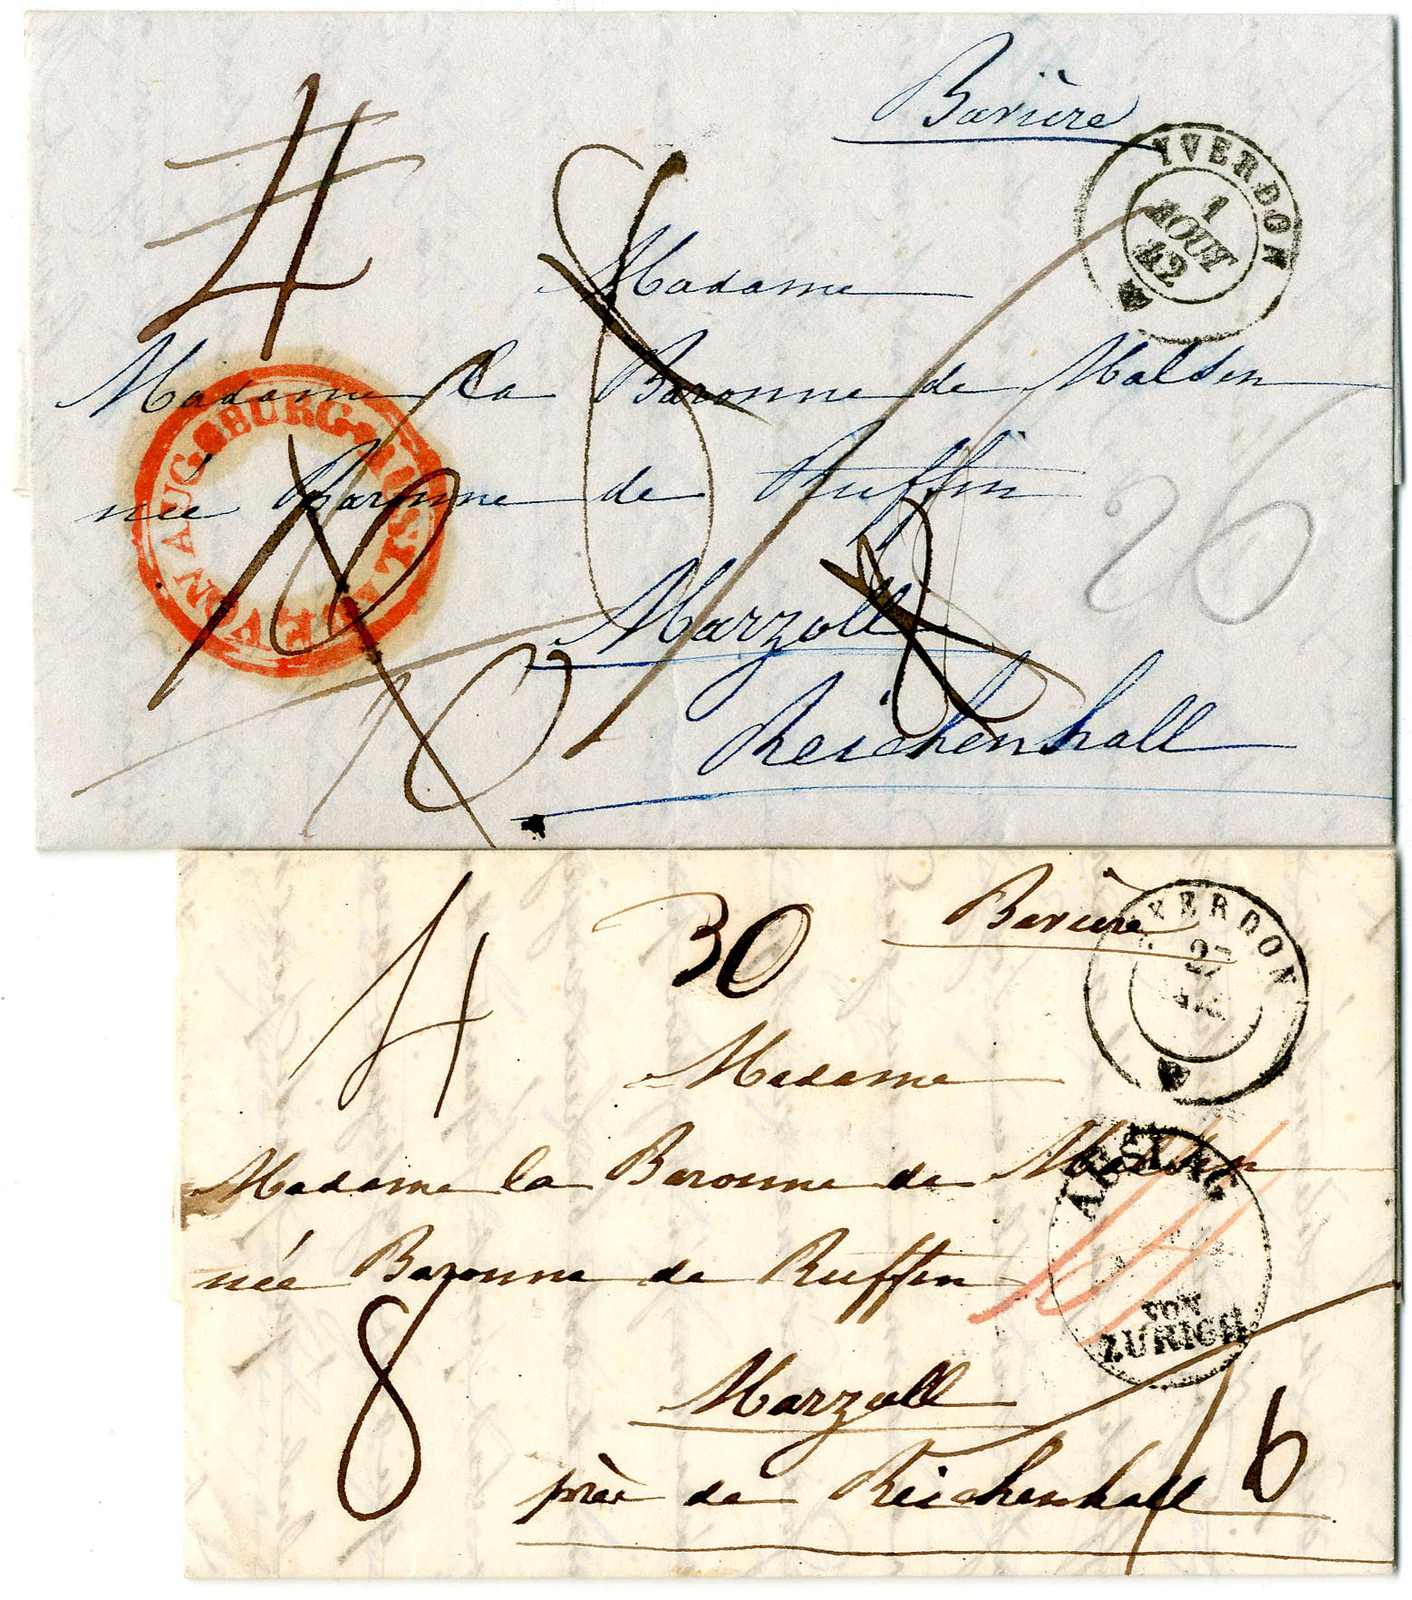 Bavière
YVERDON
1
AOUT
42
4
8
Madame
Madame la Baronne de Malsen
née Baronne de Ruffin
Marzoll
Reichenhall
26
VON AUGSBURG
8
4
30
Bavière
YVERDON
27
Madame
Madame la Baronne de Malsen
née Baronne de Ruffin
Marzoll
près de Reichenhall
AUSLAG
VON
ZÜRICH
8
16